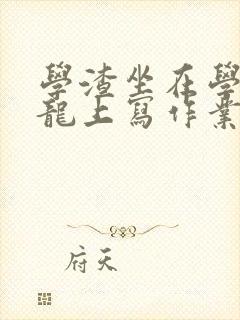 學渣坐在學
龍上寫作業
府天